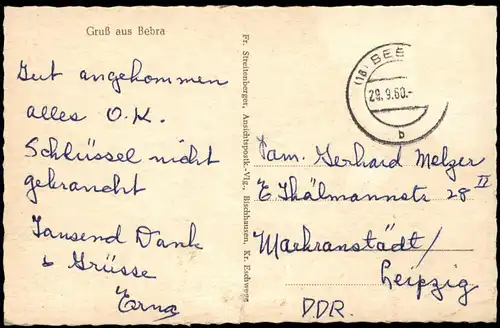 Gruß aus Bebra
Gut angekommen
alles O.K.
Schlüssel nicht
gebraucht
Tausend Dank
& Grüsse
Erna
Fr. Streitenberger, Ansichtspostk.-Vlg., Bischhausen, Kr. Eschwege
(16) BEB
29.9.60.-
b
Fam. Gerhard Melzer
E Thälmannstr 28 II
Markranstädt/
Leipzig
DDR.